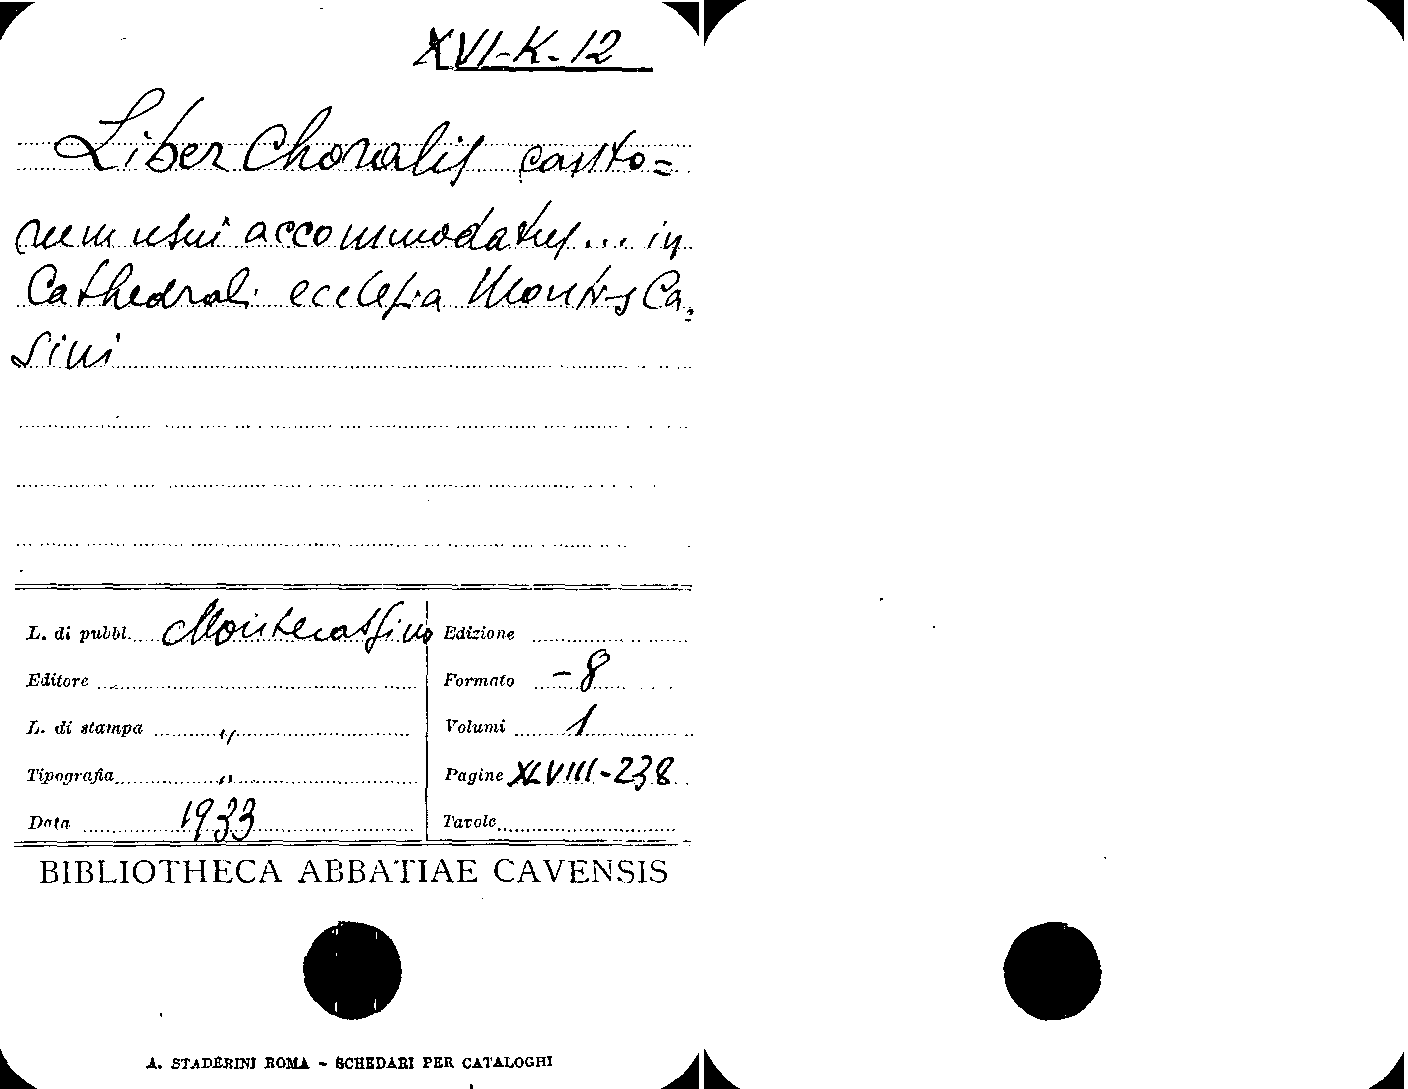 XVI-K-12
Liber Choralis canto=
rum usui accommodatus... in
Cathedrali ecclesia Montis Ca=
sini
L. di pubbl. Montecassino
Editore
L. di stampa "
Tipografia "
Data 1933
Edizione
Formato -8
Volumi 1
Pagine XLVIII-238
Tavole
BIBLIOTHECA ABBATIAE CAVENSIS
A. STADERINI ROMA - SCHEDARI PER CATALOGHI